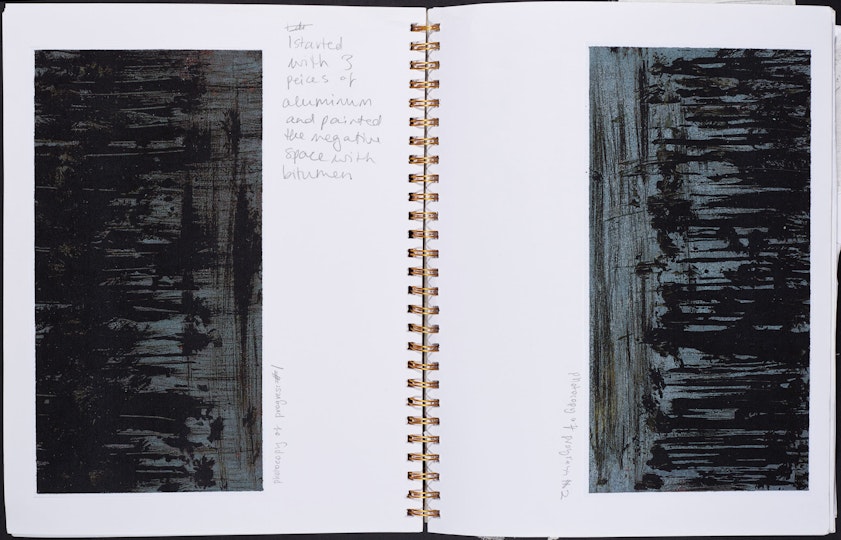 I started
with 3
peices of
aluminum
and painted
the negative
space with
bitumen
photocopy of progress 1
photocopy of progress № 2